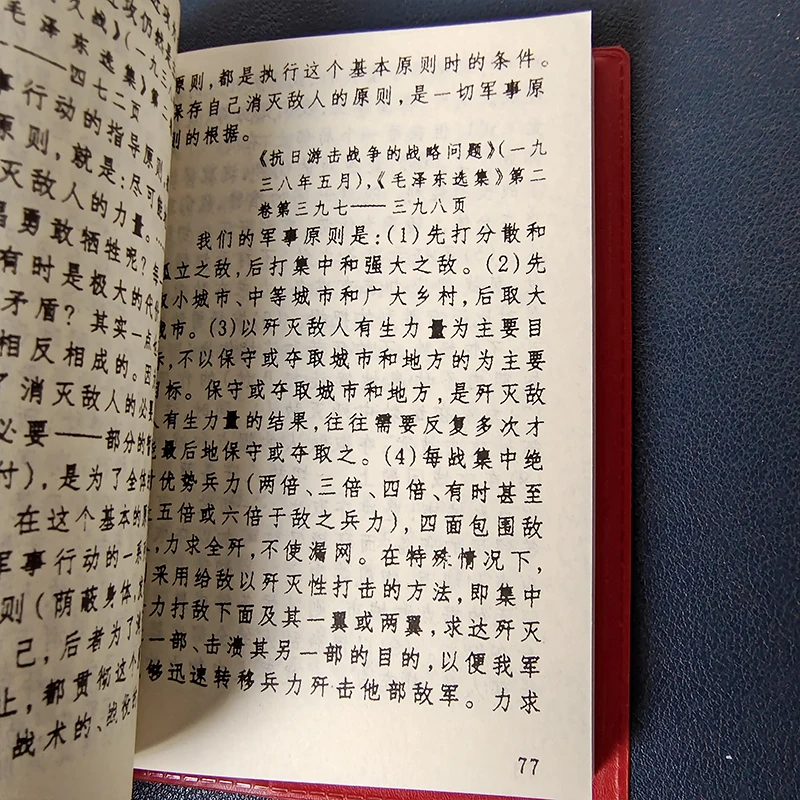 攻仍然
久战》(一九三
毛泽东选集》第二
——四七二页
事行动的指导原则
原则,就是:尽可能
灭敌人的力量。
勇敢牺牲呢?每
有时是极大的代
矛盾?其实一点
相反相成的。因
了消灭敌人的必要
必要——部分的
付),是为了全体
在这个基本的原
军事行动的一系
则(荫蔽身体,
己,后者为了
上,都贯彻这个
战术的、战役
原则,都是执行这个基本原则时的条件。
保存自己消灭敌人的原则,是一切军事原
则的根据。
《抗日游击战争的战略问题》(一九
三八年五月),《毛泽东选集》第二
卷第三九七——三九八页
我们的军事原则是:(1)先打分散和
孤立之敌,后打集中和强大之敌。(2)先
取小城市、中等城市和广大乡村,后取大
城市。(3)以歼灭敌人有生力量为主要目
标,不以保守或夺取城市和地方的为主要
目标。保守或夺取城市和地方,是歼灭敌
人有生力量的结果,往往需要反复多次才
能最后地保守或夺取之。(4)每战集中绝
优势兵力(两倍、三倍、四倍、有时甚至
五倍或六倍于敌之兵力),四面包围敌
,力求全歼,不使漏网。在特殊情况下,
采用给敌以歼灭性打击的方法,即集中
力打敌下面及其一翼或两翼,求达歼灭
一部、击溃其另一部的目的,以便我军
够迅速转移兵力歼击他部敌军。力求
77